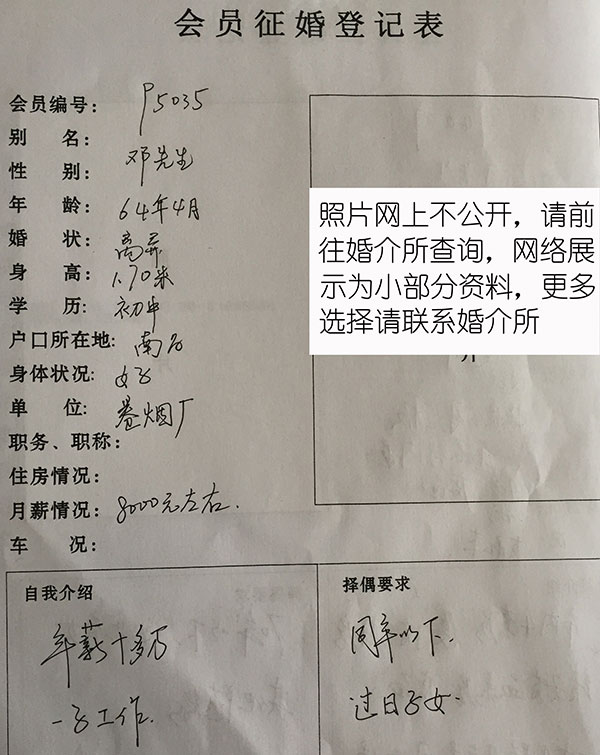 会员征婚登记表
会员编号： P5035
别 名：
性 别： 邓先生
年 龄： 64年4月
婚 状： 离异
身 高： 1.70米
学 历： 初中
户口所在地： 南石
身体状况： 好
单 位： 卷烟厂
职务、职称：
住房情况：
月薪情况： 8000元左右.
车 况：
照片网上不公开，请前
往婚介所查询，网络展
示为小部分资料，更多
选择请联系婚介所
自我介绍
年薪十多万
一子工作.
择偶要求
同年以下.
过日子女.